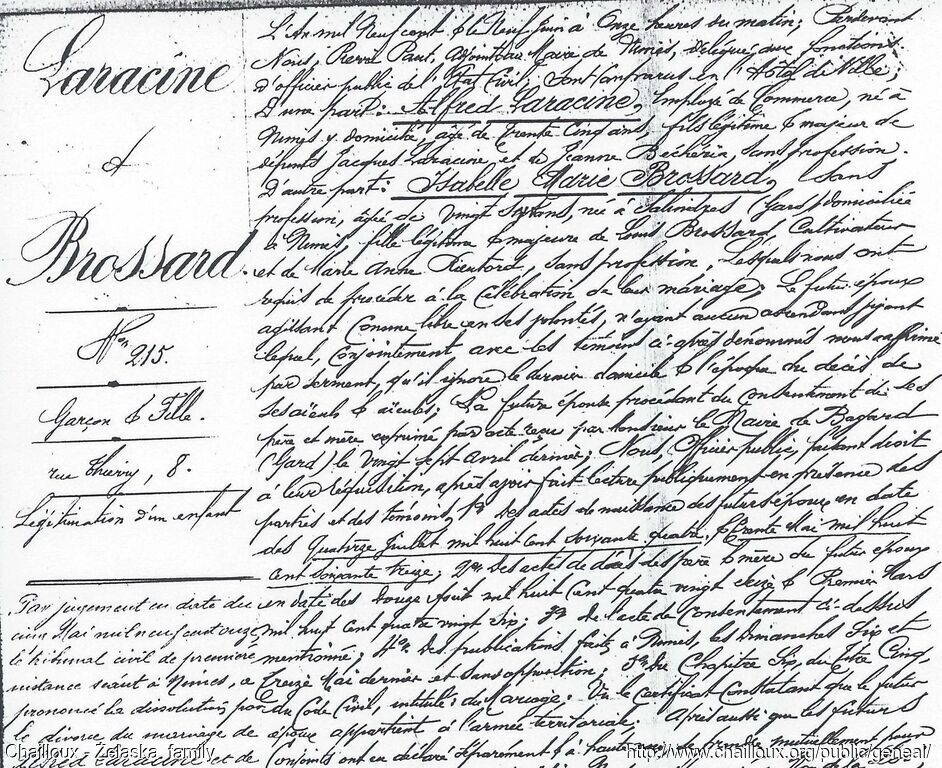 Laracine
&
Brossard.
Nos 215.
Garçon & Fille.
rue Thierry, 8.
Légitimation d'un enfant
L'An mil Neuf cent & le neuf juin à Onze heures du matin; Pardevant
Nous, Pierre Paut, adjoint au Maire de Nimes, délégué aux fonctions
d'officier public de l'Etat Civil, sont comparus en l'Hôtel de Ville;
D'une part: Alfred Laracine, Employé de Commerce, né à
Nimes y domicilié, âgé de Trente Cinq ans, fils légitime & majeur de
défunts Jacques Laracine, et de Jeanne Béchéria, sans profession.
D'autre part: Isabelle Marie Brossard, sans
profession, âgée de Vingt Sept ans, née à Salindres (Gard) domiciliée
à Nimes, fille légitime & majeure de Louis Brossard, Cultivateur
et de Marie Anne Rientord, sans profession, Lesquels nous ont
requis de procéder à la Célébration de leur mariage; Le futur époux
agissant Comme libre en ses volontés, n'ayant aucun ascendant vivant
lequel, Conjointement avec les témoins ci-après dénommés nous a affirmé
par serment, qu'il ignore le dernier domicile & l'époque du décès de
ses aïeuls & aïeules; La future épouse procédant du Consentement de ses
père et mère exprimé par acte reçu par Monsieur le Maire de Bagard
(Gard) le Vingt Sept Avril dernier; Nous, Officier public, faisant droit
à leur réquisition, après avoir fait lecture publiquement en présence des
parties et des témoins, 1º Des actes de naissance des futurs époux en date
des Quatorze Juillet mil huit cent soixante quatre, & Trente Mai mil huit
cent soixante treize; 2º Des actes de décès des père & mère du futur époux
en date des Douze Août mil huit Cent quatre vingt & Premier Mars
mil huit cent quatre vingt Six; 3º De l'acte de Consentement ci-dessus
mentionné; 4º Des publications faites à Nimes, les dimanches Six et
Treize Mai dernier et sans opposition; 5º Du Chapitre Six, du titre Cinq,
du Code Civil, intitulé: du Mariage. Vu le Certificat Constatant que le futur
époux appartient à l'armée territoriale. Après aussi que les futurs
Conjoints ont eu déclaré séparément & à haute mutuellement pour
Par jugement en date du
cinq Mai mil neuf cent onze
le tribunal civil de première
instance séant à Nimes, a
prononcé la dissolution par
le divorce du mariage de
Alfred Laracine et de
Chailloux - Zelaska family
http://www.chailloux.org/public/geneal/